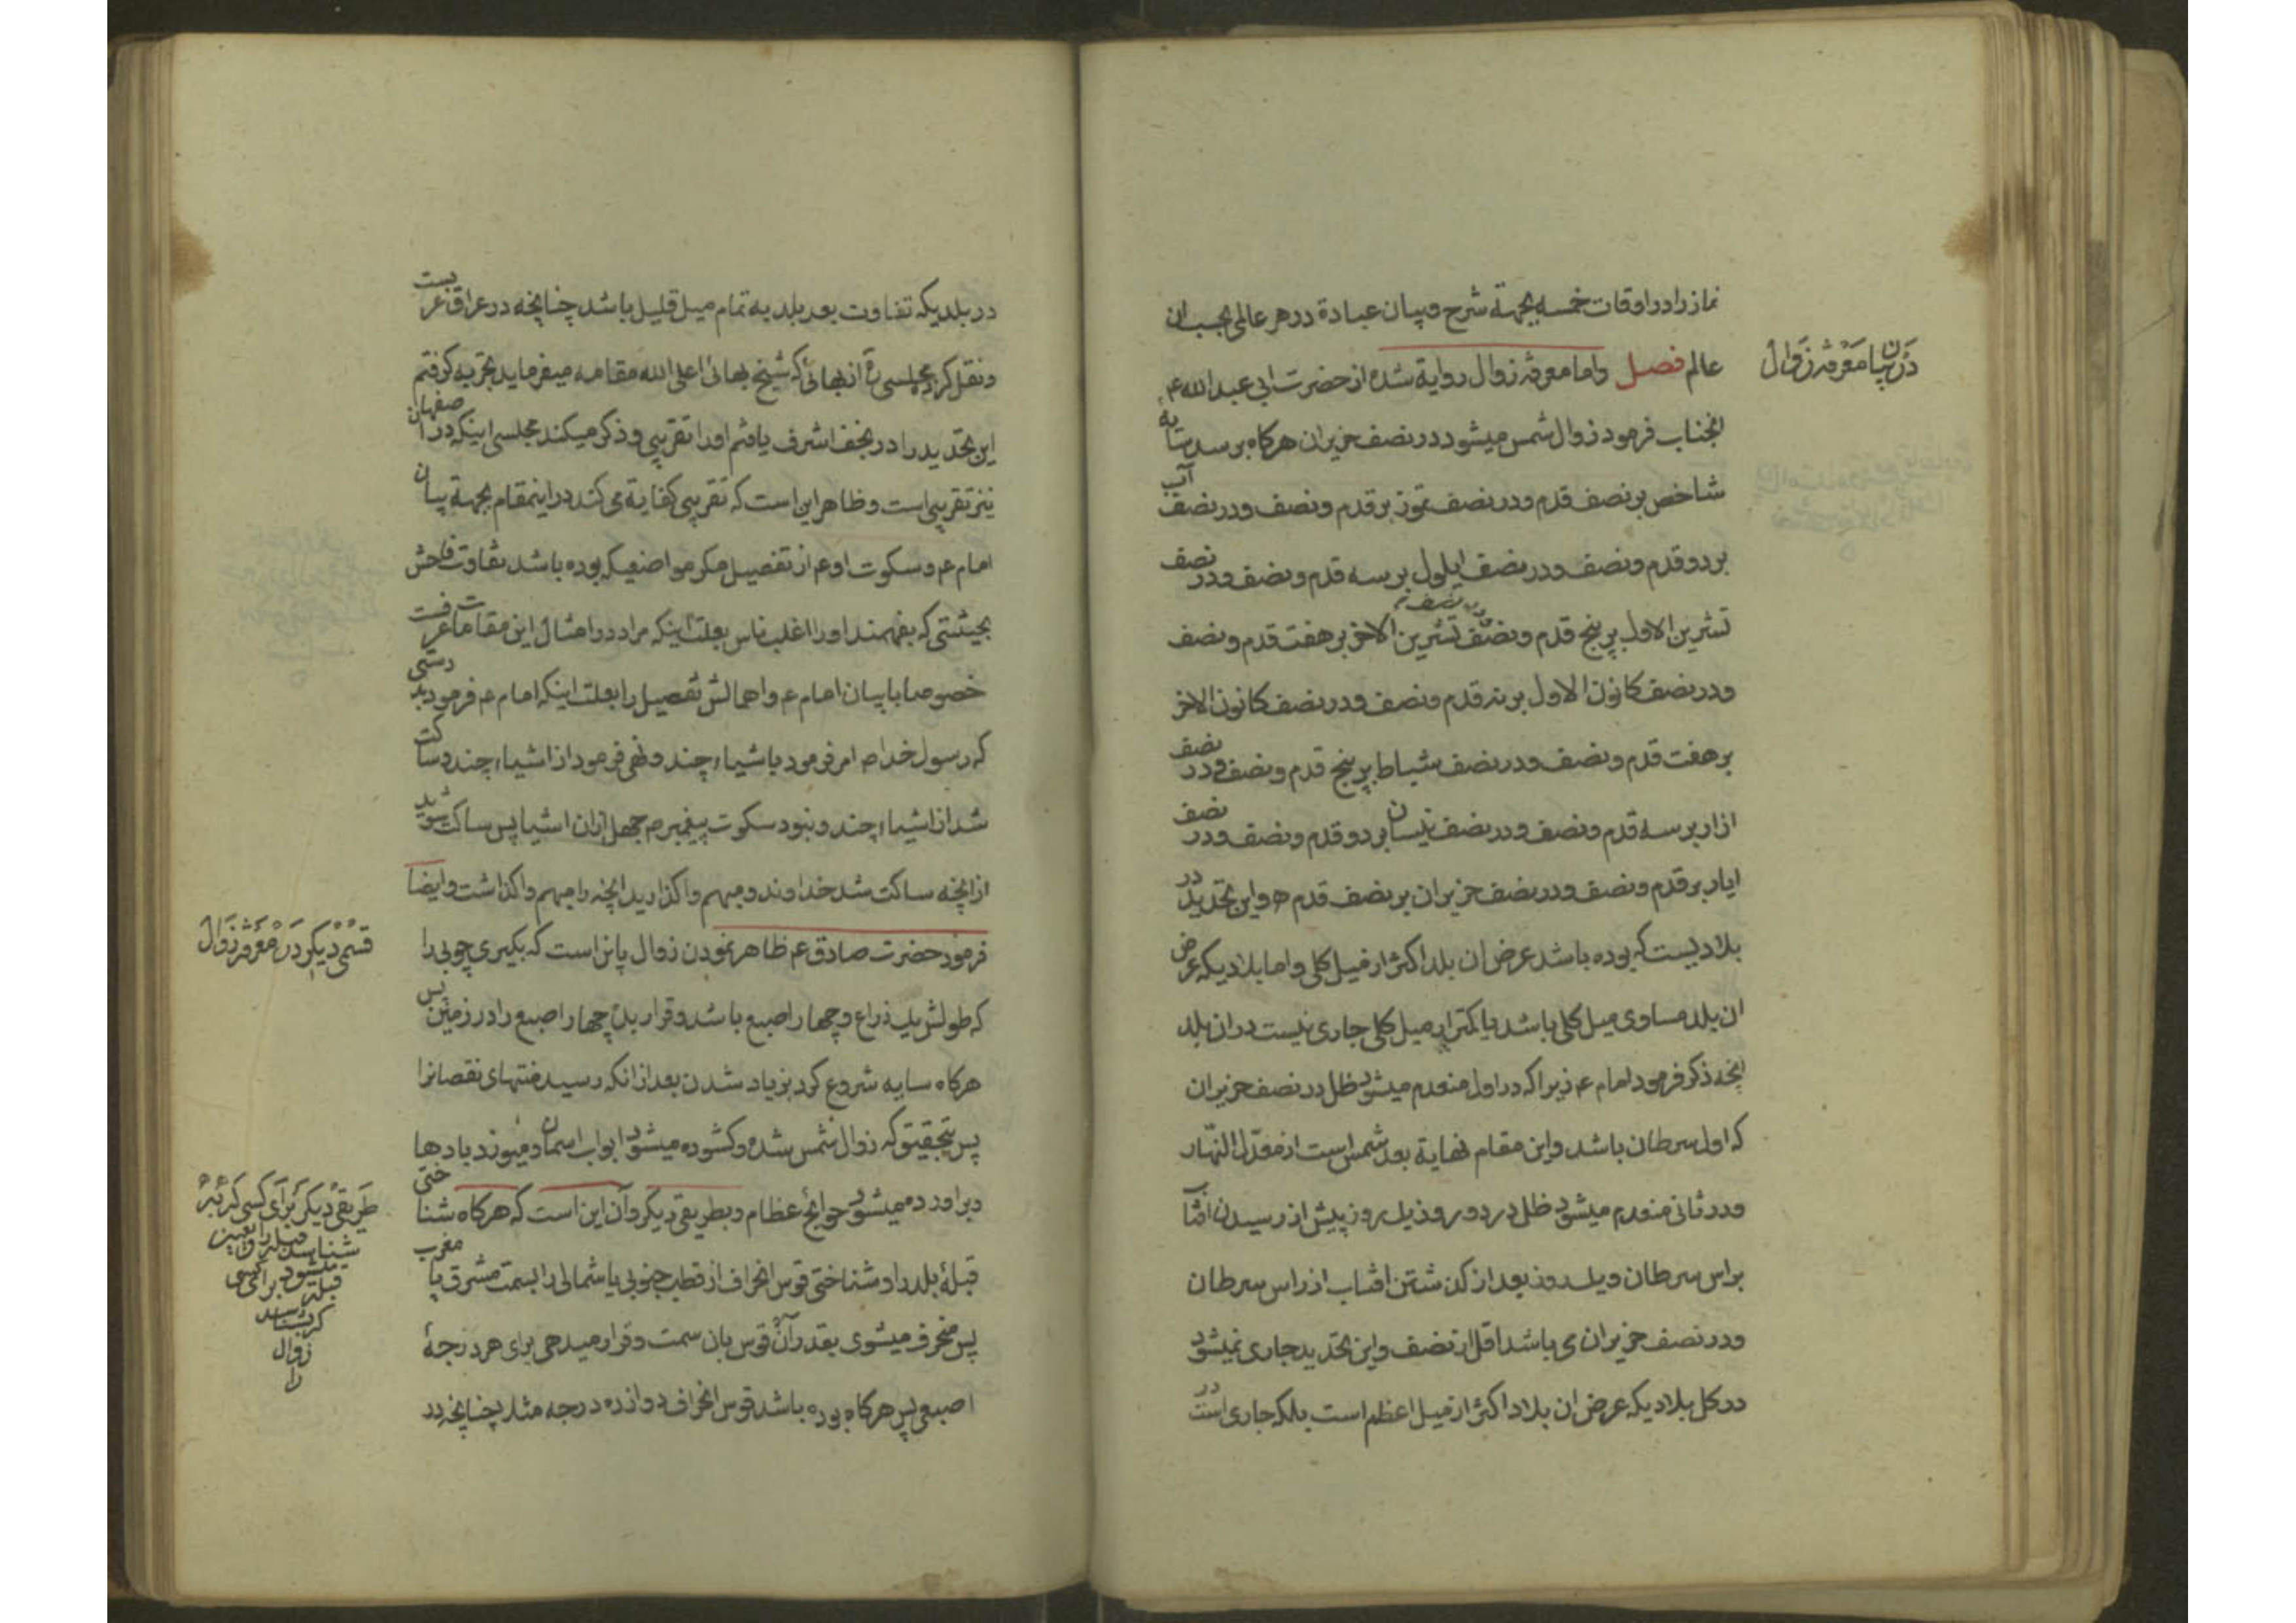 نماز را در اوقات خمسه بجهة شرح و بیان عبادة در هر عالمی بحسب ان
عالم فصل واما معرفة زوال روایة شده از حضرت ابی عبد الله ع
در بیان معرفة زوال
انجناب فرمود زوال شمس میشود در نصف حزیران هرکاه برسد سایه
شاخص بر نصف قدم و در نصف تموز بر قدم و نصف و در نصف آب
بر دو قدم و نصف و در نصف ایلول بر سه قدم و نصف و در نصف
تشرین الاول بر پنج قدم و نصف و در نصف تشرین الاخر بر هفت قدم و نصف
و در نصف کانون الاول بر نه قدم و نصف و در نصف کانون الاخر
بر هفت قدم و نصف و در نصف شباط بر پنج قدم و نصف و در نصف
ازار بر سه قدم و نصف و در نصف نیسان بر دو قدم و نصف و در نصف
ایار بر قدم و نصف و در نصف حزیران بر نصف قدم و این تحدید در
بلادیست که بوده باشد عرض ان بلد اکثر از میل کلی و اما بلادیکه عرض
ان بلد مساوی میل کلی باشد یا کمتر از میل کلی جاری نیست در ان بلد
انچه ذکر فرمود امام ع زیرا که در اول منعدم میشود ظل در نصف حزیران
که اول سرطان باشد و این مقام نهایة بعد شمس است از معدّل النّهار
و در ثانی منعدم میشود ظل در دو روز یک روز پیش از رسیدن افتاب
براس سرطان و یکروز بعد از کذشتن افتاب از راس سرطان
و در نصف حزیران می باشد اقل از نصف و این تحدید جاری نمیشود
در کل بلادیکه عرض ان بلاد اکثر از میل اعظم است بلکه جاری است در
در بلدیکه تفاوت بعد بلد به تمام میل قلیل باشد چنانچه در عراق عربست
و نقل کرده مجلسی ره از بهائی که شیخ بهائی اعلی الله مقامه میفرماید تجربه کرفتم
این تحدید را در نجف اشرف یافتم او را تقریبی و ذکر میکند مجلسی اینکه در اصفهان
نیز تقریبی است و ظاهر این است که تقریبی کفایة می کند در اینمقام بجهة بیان
امام ع و سکوت او ع از تفصیل مکر مواضعیکه بوده باشد تفاوت فاحش
بحیثیتی که بفهمند او را اغلب ناس بعلت اینکه مراد در امثال این مقامات عرفست
خصوصا با بیان امام ع و اهمالش تفصیل را بعلت اینکه امام ع فرمود بدرستی
که رسول خدا ص امر فرمود باشیاء چند و نهی فرمود از اشیاء چند و ساکت
شد از اشیاء چند و نبود سکوت پیغمبر ص جهل از ان اشیا پس ساکت شوید
از انچه ساکت شد خداوند و مبهم واکذارید انچه را مبهم واکذاشت و ایضا
فرمود حضرت صادق ع ظاهر نمودن زوال باین است که بکیری چوبی را
قسمی دیکر در معرفة زوال
که طولش یک ذراع و چهار اصبع باشد و قرار بده چهار اصبع را در زمین پس
هرکاه سایه شروع کرد بزیاد شدن بعد از انکه رسید منتهای نقصانرا
پس بتحقیق که زوال شمس شده و کشوده میشود ابواب اسمان و میوزد بادها
و براورده میشود حوایج عظام و بطریقی دیکر و آن این است که هرکاه شناختی
طریقی دیکر برای کسی که
قبلۀ بلد را و شناختی قوس انحراف از قطب جنوبی یا شمالی را بسمت مشرق یا مغرب
پس منحرف میشوی بقدر آن قوس بان سمت و قرار میدهی برای هر درجۀ
اصبعی پس هرکاه بوده باشد قوس انحراف دوازده درجه مثلا چنانچه در
شناسد قبله را
میشود
قبله برای کسی
که شناسد
زوال
را